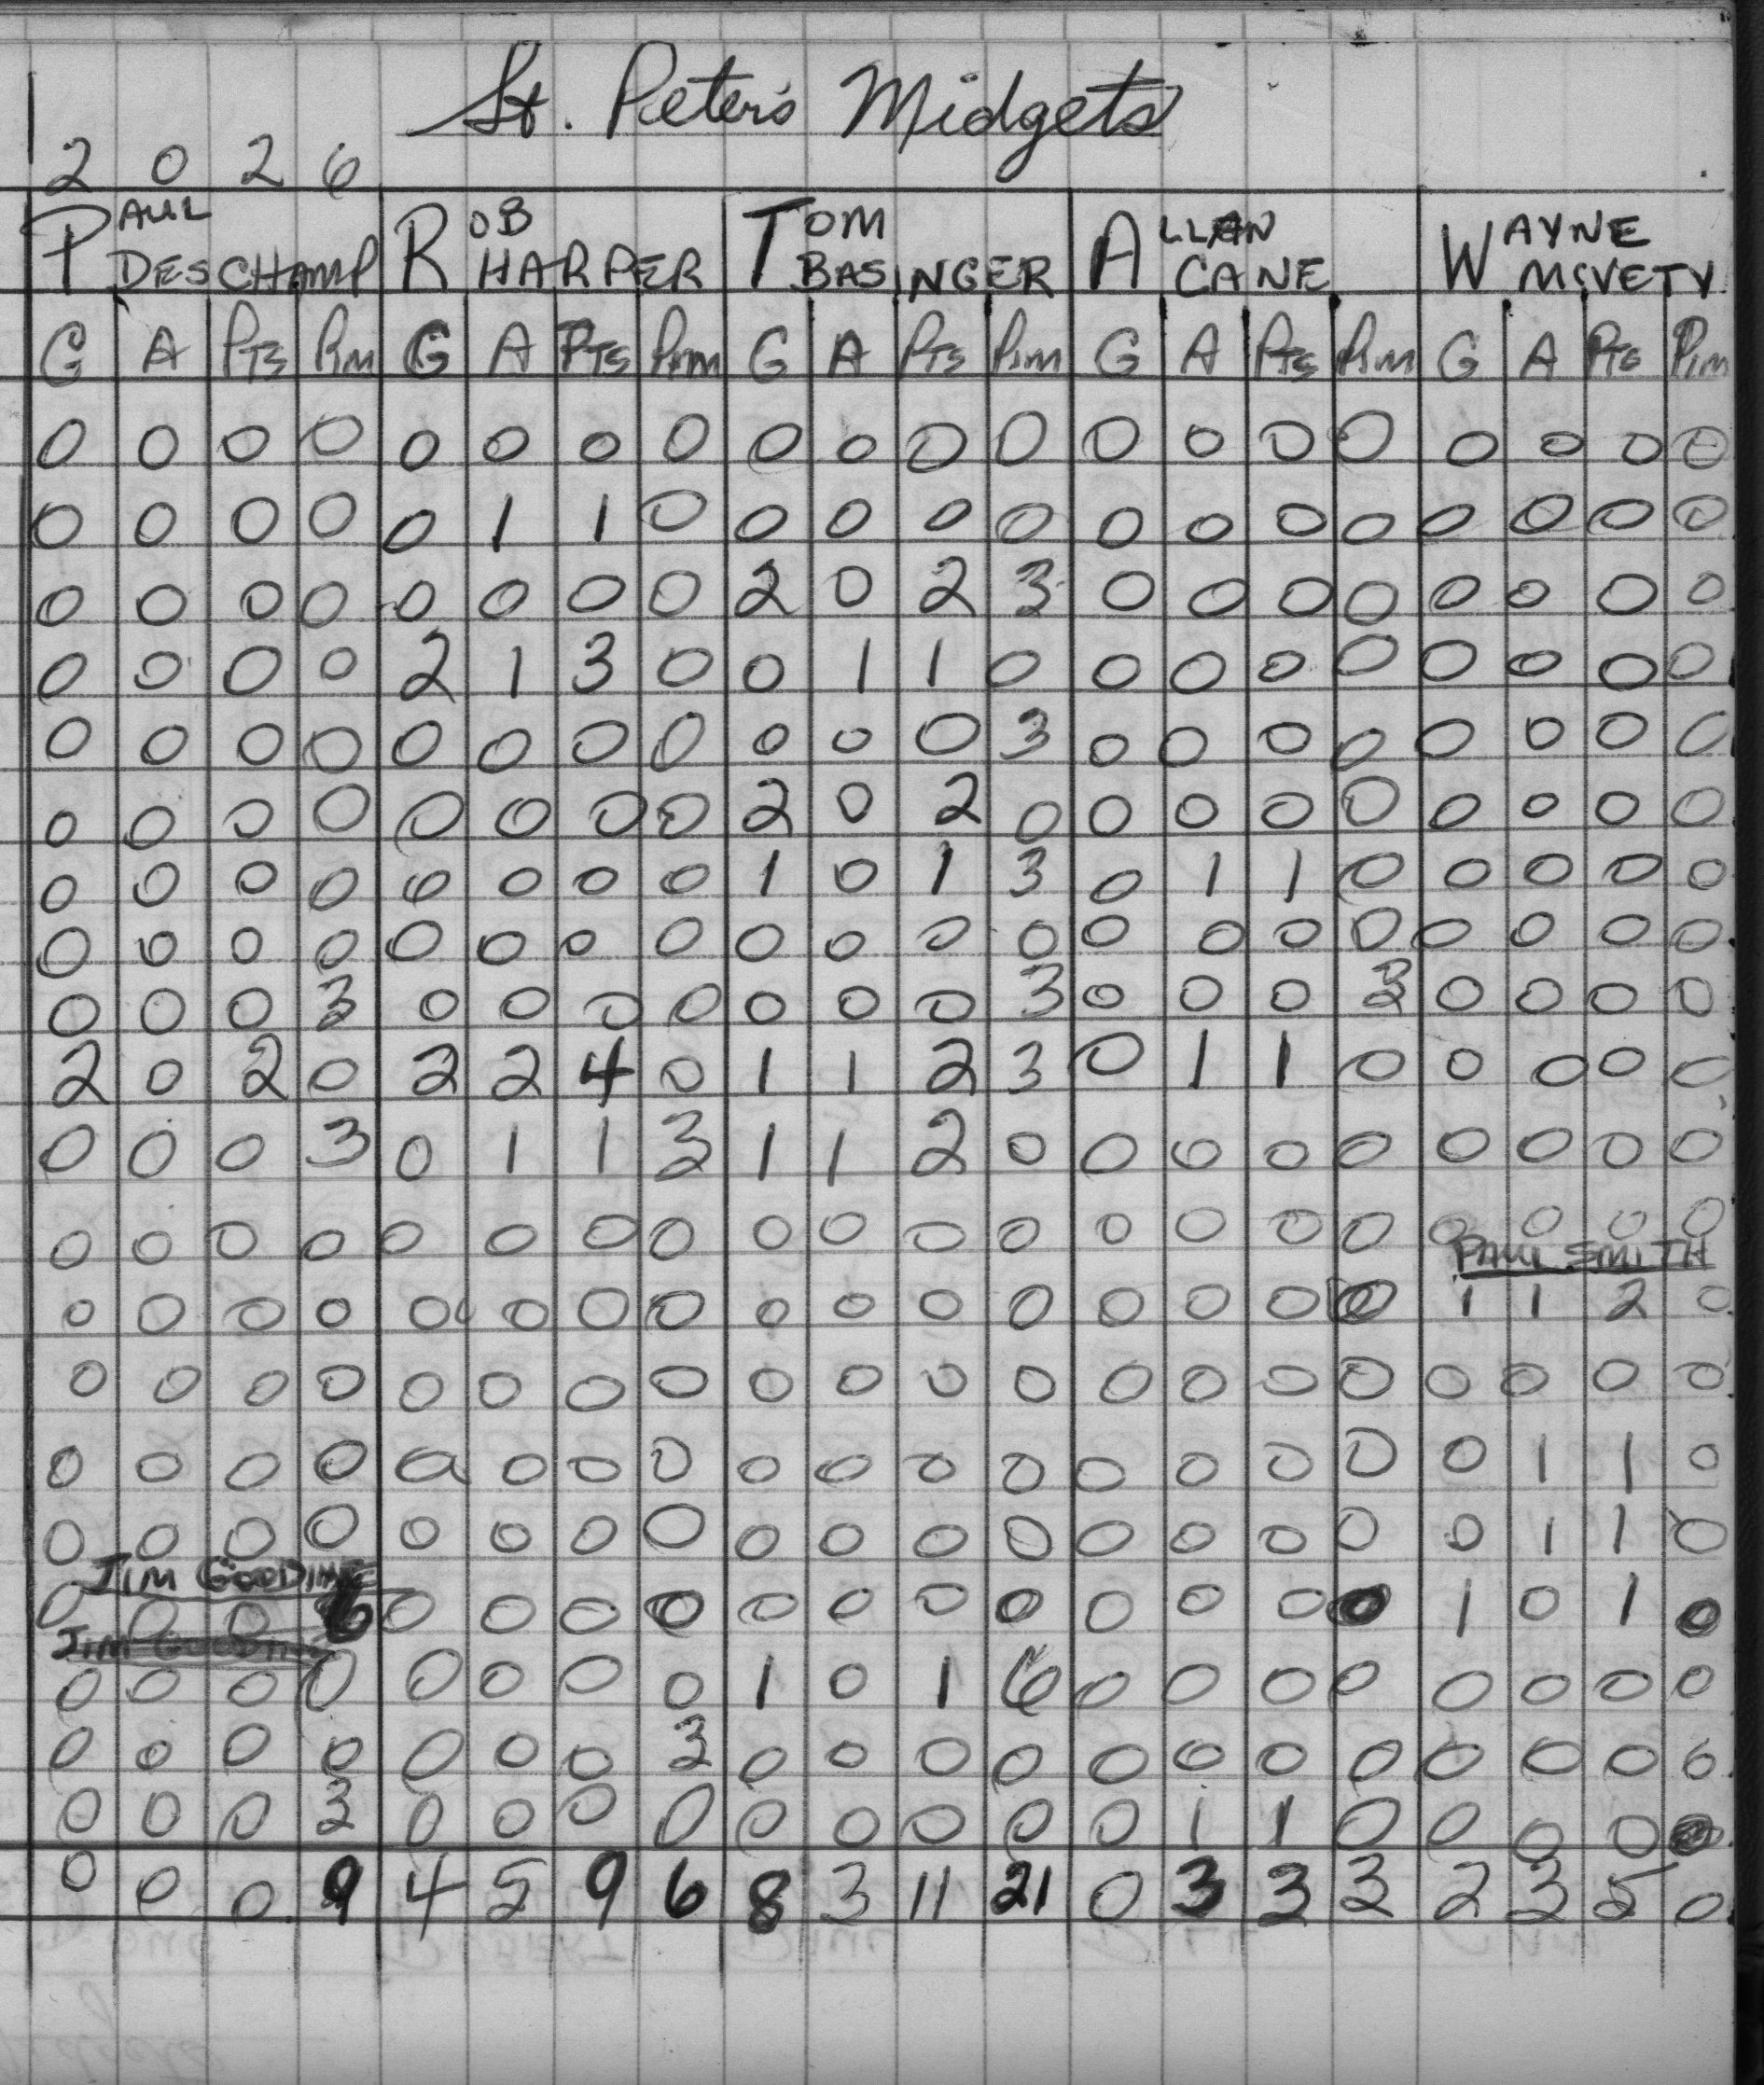 St. Peter's Midgets
2 0 2 6
PAUL DESCHAMP ROB HARPER TOM BASINGER ALLAN CANE WAYNE McVETY
G A PTS PIM G A PTS PIM G A PTS PIM G A PTS PIM G A PTS PIM
0 0 0 0 0 0 0 0 0 0 0 0 0 0 0 0 0 0 0 0
0 0 0 0 0 1 1 0 0 0 0 0 0 0 0 0 0 0 0 0
0 0 0 0 0 0 0 0 2 0 2 3 0 0 0 0 0 0 0 0
0 0 0 0 2 1 3 0 0 1 1 0 0 0 0 0 0 0 0 0
0 0 0 0 0 0 0 0 0 0 0 3 0 0 0 0 0 0 0 0
0 0 0 0 0 0 0 0 2 0 2 0 0 0 0 0 0 0 0 0
0 0 0 0 0 0 0 0 1 0 1 3 0 1 1 0 0 0 0 0
0 0 0 0 0 0 0 0 0 0 0 0 0 0 0 0 0 0 0 0
0 0 0 3 0 0 0 0 0 0 0 3 0 0 0 3 0 0 0 0
2 0 2 0 2 2 4 0 1 1 2 3 0 1 1 0 0 0 0 0
0 0 0 3 0 1 1 3 1 1 2 0 0 0 0 0 0 0 0 0
0 0 0 0 0 0 0 0 0 0 0 0 0 0 0 0 0 0 0 0
PAUL SMITH
0 0 0 0 0 0 0 0 0 0 0 0 0 0 0 0 1 1 2 0
0 0 0 0 0 0 0 0 0 0 0 0 0 0 0 0 0 0 0 0
0 0 0 0 0 0 0 0 0 0 0 0 0 0 0 0 0 1 1 0
0 0 0 0 0 0 0 0 0 0 0 0 0 0 0 0 0 1 1 0
JIM GOODING
0 0 0 6 0 0 0 0 0 0 0 0 0 0 0 0 1 0 1 0
JIM GOODING
0 0 0 0 0 0 0 0 1 0 1 6 0 0 0 0 0 0 0 0
0 0 0 0 0 0 0 3 0 0 0 0 0 0 0 0 0 0 0 0
0 0 0 3 0 0 0 0 0 0 0 0 0 1 1 0 0 0 0 0
0 0 0 9 4 5 9 6 8 3 11 21 0 3 3 3 2 3 5 0